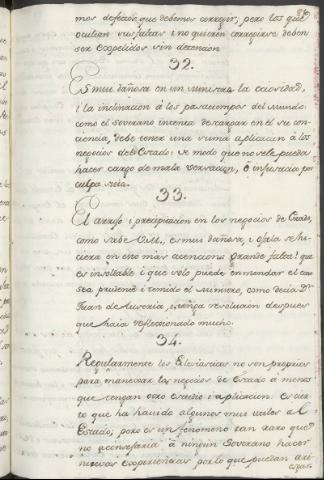 mos defectos que debemos corregir, pero los que
ocultan sus faltas i no quieren corregirse deben
ser expelidos sin detencion
32.
Es mui dañosa en un ministro la ociosidad,
i la inclinacion á los pasatiempos del mundo.
como el soverano intenta descargar en él su con-
ciencia, debe tener una suma aplicacion á los
negocios del Estado: de modo que no se le pueda
hacer cargo de mala versacion, ó injusticia por
culpa suia.
33.
El arrojo i precipitacion en los negocios de Estado,
como sabe es mui dañosa, i ojala se hi-
ciera en eso mas atencion. Grande falta! que
es insoltable i que solo puede enmendar el
sea prudente i temido el ministro, como decia Dn
Juan de Austria, i tenga resolucion despues
que haia reflexionado mucho.
34.
Regularmente los Eclesiasticos no son proprios
para manexar los negocios de Estado á menos
que tengan otro estudio i aplicacion. Es cier-
to que ha havido algunos mui utiles al
Estado, pero es un fenomeno tan raro que
no aconsejaria á ningun Soverano hacer
nuevas experiencias por lo que puedan arri-
esgar.